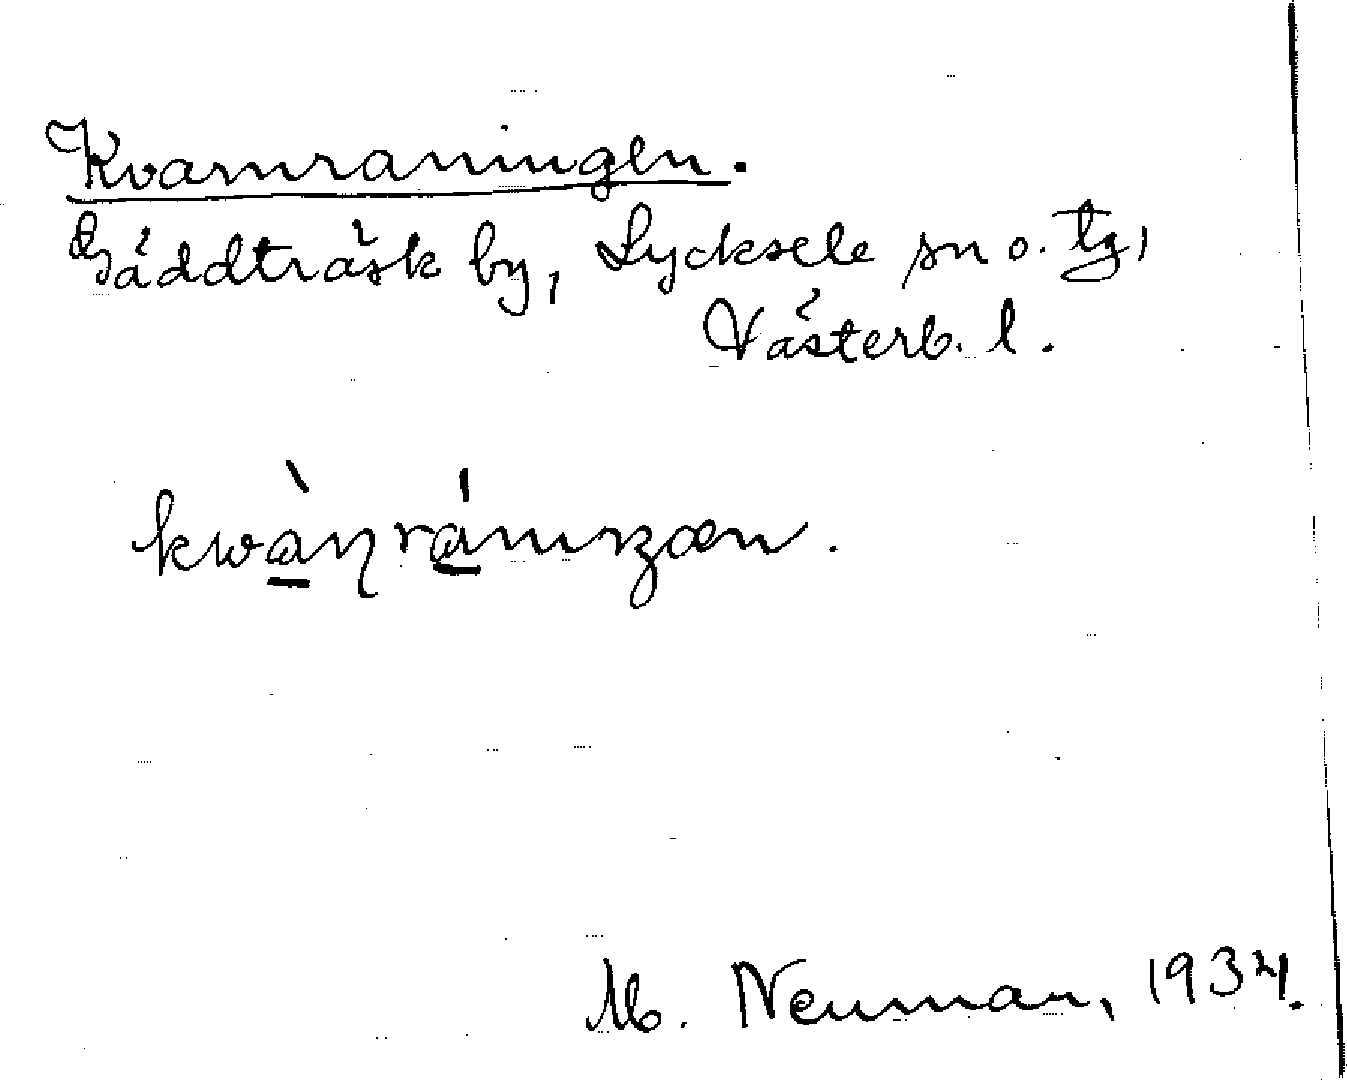 Kvarnraningen.
Gäddträsk by, Lycksele sn o. tg,
Västerb. l.
kwàɳrániŋæn.
M. Neuman, 1934.